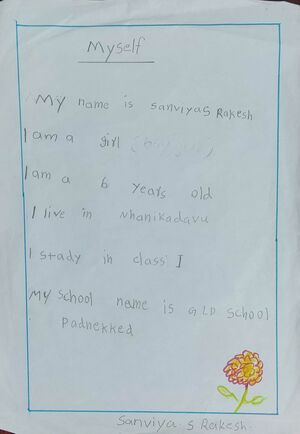 Myself
My name is sanviyas Rakesh
I am a girl
I am a 6 years old
I live in Nhanikadavu
I stady in class I
My school name is GLP school
Padnekked
Sanviya S Rakesh.